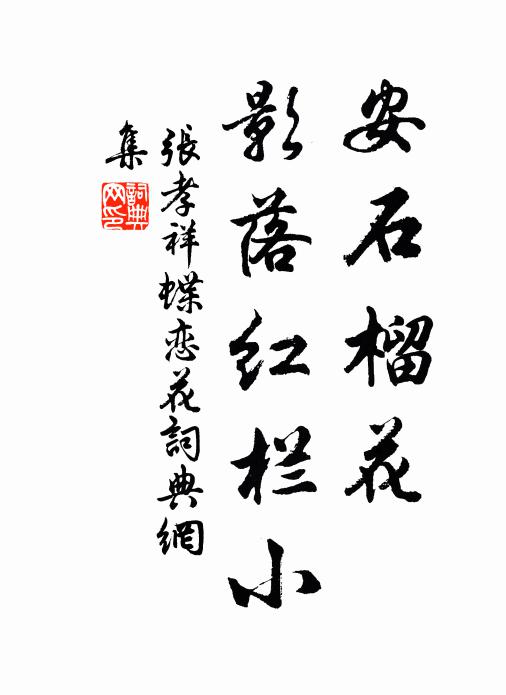 安石榴花
影落红栏小
張孝祥蝶恋花詞典網
集
詞典网印